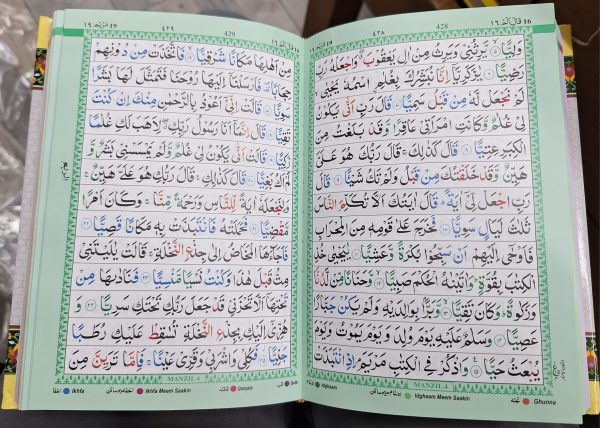 ١٦ قَالَ اَلَمْ 16
٤٢٨
428
١٩ مَرْيَم 19
وَلِيًّا ۙ۵ يَّرِثُنِىْ وَيَرِثُ مِنْ اٰلِ يَعْقُوْبَ ۖ وَاجْعَلْهُ رَبِّ
رَضِيًّا ۶ يٰزَكَرِيَّاۤ اِنَّا نُبَشِّرُكَ بِغُلٰمِ ࣙاسْمُهٗ يَحْيٰى ۙ
لَمْ نَجْعَلْ لَّهٗ مِنْ قَبْلُ سَمِيًّا ۷ قَالَ رَبِّ اَنّٰى يَكُوْنُ
لِىْ غُلٰمٌ وَّكَانَتِ امْرَاَتِىْ عَاقِرًا وَّقَدْ بَلَغْتُ مِنَ
الْكِبَرِ عِتِيًّا ۸ قَالَ كَذٰلِكَ ۚ قَالَ رَبُّكَ هُوَ عَلَىَّ
هَيِّنٌ وَّقَدْ خَلَقْتُكَ مِنْ قَبْلُ وَلَمْ تَكُ شَيْـًٔا ۹ قَالَ
رَبِّ اجْعَلْ لِّىْۤ اٰيَةً ؕ قَالَ اٰيَتُكَ اَلَّا تُكَلِّمَ النَّاسَ
ثَلٰثَ لَيَالٍ سَوِيًّا ۱۰ فَخَرَجَ عَلٰى قَوْمِهٖ مِنَ الْمِحْرَابِ
فَاَوْحٰۤى اِلَيْهِمْ اَنْ سَبِّحُوْا بُكْرَةً وَّعَشِيًّا ۱۱ يٰيَحْيٰى خُذِ
الْكِتٰبَ بِقُوَّةٍ ؕ وَاٰتَيْنٰهُ الْحُكْمَ صَبِيًّا ۱۲ وَّحَنَانًا مِّنْ لَّدُنَّا
وَزَكٰوةً ؕ وَكَانَ تَقِيًّا ۱۳ وَّبَرًّۢا بِوَالِدَيْهِ وَلَمْ يَكُنْ جَبَّارًا
عَصِيًّا ۱۴ وَسَلٰمٌ عَلَيْهِ يَوْمَ وُلِدَ وَيَوْمَ يَمُوْتُ وَيَوْمَ
يُبْعَثُ حَيًّا ۱۵ وَاذْكُرْ فِى الْكِتٰبِ مَرْيَمَ ۘ اِذِ انْتَبَذَتْ
MANZIL 4
Idghaam
Idghaam Meem Saakin
Ghunna
١٦ قَالَ اَلَمْ 16
٤٢٩
429
١٩ مَرْيَم 19
مِنْ اَهْلِهَا مَكَانًا شَرْقِيًّا ۱۶ فَاتَّخَذَتْ مِنْ دُوْنِهِمْ
حِجَابًا ۫ فَاَرْسَلْنَاۤ اِلَيْهَا رُوْحَنَا فَتَمَثَّلَ لَهَا بَشَرًا
سَوِيًّا ۱۷ قَالَتْ اِنِّىْۤ اَعُوْذُ بِالرَّحْمٰنِ مِنْكَ اِنْ كُنْتَ
تَقِيًّا ۱۸ قَالَ اِنَّمَاۤ اَنَا رَسُوْلُ رَبِّكِ ۖ لِاَهَبَ لَكِ غُلٰمًا
زَكِيًّا ۱۹ قَالَتْ اَنّٰى يَكُوْنُ لِىْ غُلٰمٌ وَّلَمْ يَمْسَسْنِىْ بَشَرٌ وَّ
لَمْ اَكُ بَغِيًّا ۲۰ قَالَ كَذٰلِكِ ۚ قَالَ رَبُّكِ هُوَ عَلَىَّ هَيِّنٌ ۚ
وَلِنَجْعَلَهٗۤ اٰيَةً لِّلنَّاسِ وَرَحْمَةً مِّنَّا ۚ وَكَانَ اَمْرًا
مَّقْضِيًّا ۲۱ فَحَمَلَتْهُ فَانْتَبَذَتْ بِهٖ مَكَانًا قَصِيًّا ۲۲
فَاَجَآءَهَا الْمَخَاضُ اِلٰى جِذْعِ النَّخْلَةِ ۚ قَالَتْ يٰلَيْتَنِىْ
مِتُّ قَبْلَ هٰذَا وَكُنْتُ نَسْيًا مَّنْسِيًّا ۲۳ فَنَادٰىهَا مِنْ
تَحْتِهَاۤ اَلَّا تَحْزَنِىْ قَدْ جَعَلَ رَبُّكِ تَحْتَكِ سَرِيًّا ۲۴ وَ
هُزِّىْۤ اِلَيْكِ بِجِذْعِ النَّخْلَةِ تُسٰقِطْ عَلَيْكِ رُطَبًا
جَنِيًّا ۲۵ فَكُلِىْ وَاشْرَبِىْ وَقَرِّىْ عَيْنًا ۚ فَاِمَّا تَرَيِنَّ مِنَ
MANZIL 4
Ikhfa
Ikhfa Meem Saakin
Qalqala
Qalb